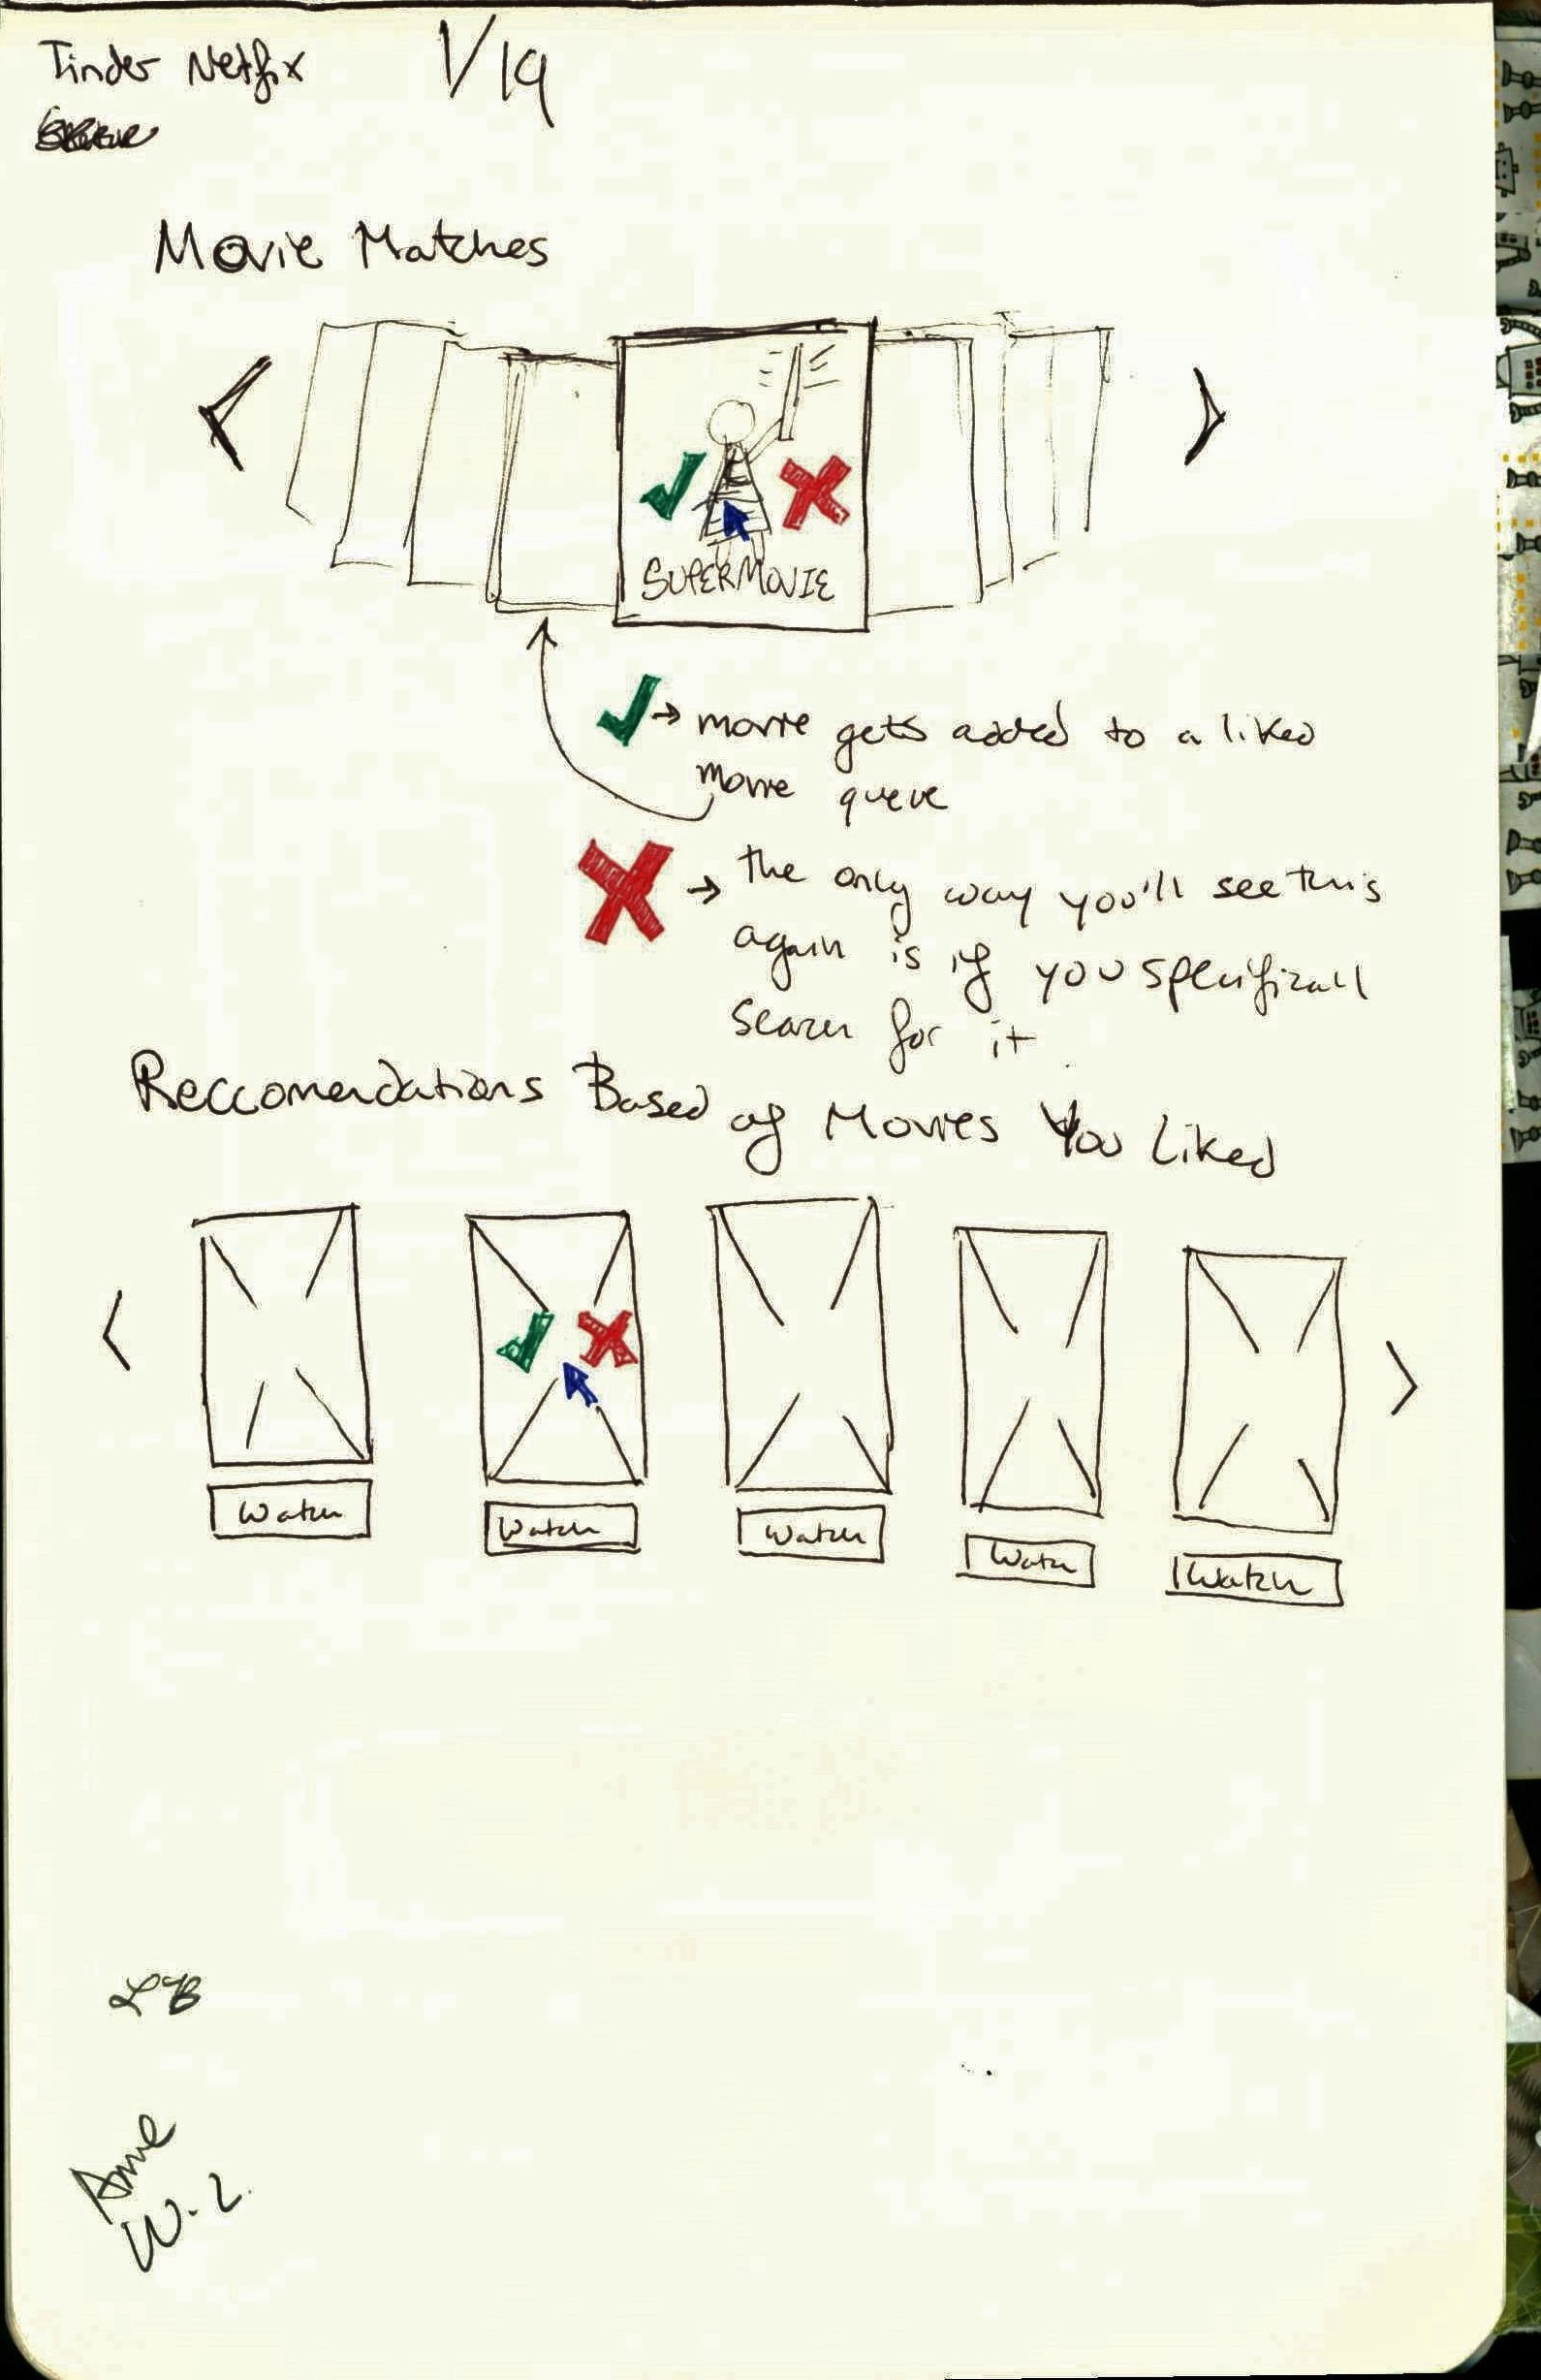 Tinder Netfix 1/19
Movie Matches
SUPERMOVIE
→ movie gets added to a liked
movie queue
→ the only way you'll see this
again is if you specifizall
search for it
Reccomendations Based of Movies You Liked
Watch Watch Watch Watch Watch
W. L.